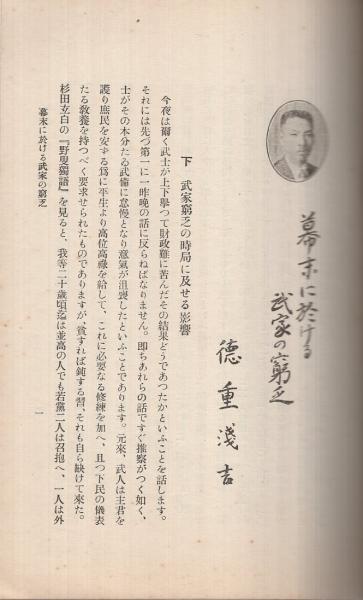 幕末に於ける
武家の窮乏
德重淺吉
下 武家窮乏の時局に及せる影響
今夜は爾く武士が上下擧つて財政難に苦んだその結果どうであつたかといふことを話します。
それには先づ第一に一昨晩の話に反らねばなりません。卽ちあれらの話ですぐ推察がつく如く、
士がその本分たる武備に怠慢となり意氣が沮喪したといふことであります。元來、武人は主君を
護り庶民を安ずる爲に平生より高位高祿を給して、これに必要なる修練を加へ、且つ下民の儀表
たる敎養を持つべく要求せられたものでありますが、貧すれば鈍する習、それも自ら缺けて來た。
杉田玄白の『野叟獨語』を見ると、我等二十歲頃迄は並高の人でも若黨二人は召抱へ、一人は外
幕末に於ける武家の窮乏
一